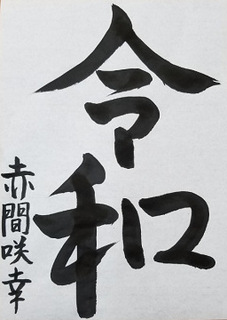 令和
赤間咲幸